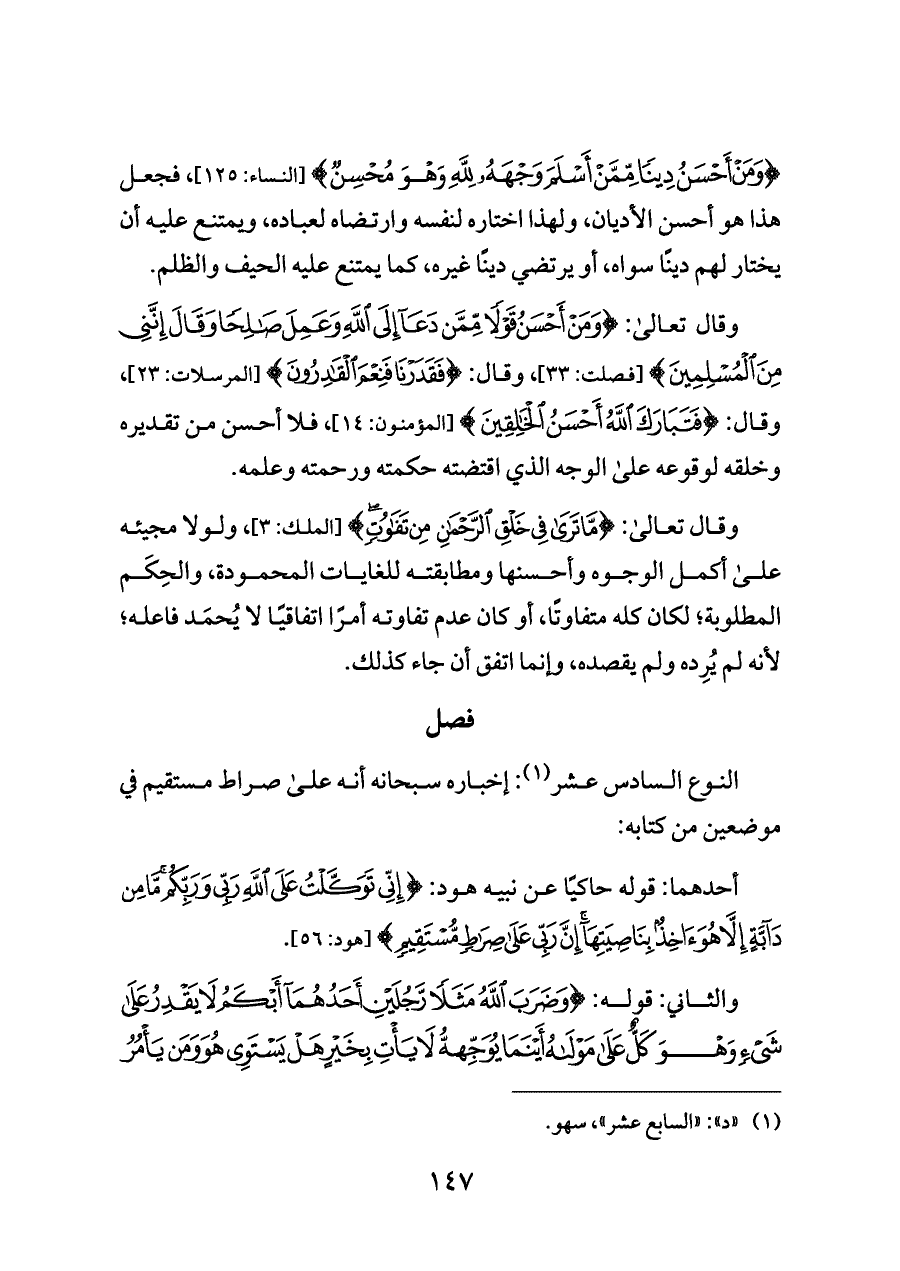 ﴿وَمَنْ أَحْسَنُ دِينًا مِّمَّنْ أَسْلَمَ وَجْهَهُۥ لِلَّهِ وَهُـوَ مُحْسِنٌ﴾ [النساء: ١٢٥]، فجعل
هذا هو أحسن الأديان، ولهذا اختاره لنفسه وارتضاه لعباده، ويمتنع عليه أن
يختار لهم دينًا سواه، أو يرتضي دينًا غيره، كما يمتنع عليه الحيف والظلم.
وقال تعالىٰ: ﴿وَمَنْ أَحْسَنُ قَوْلًا مِّمَّن دَعَآ إِلَى ٱللَّهِ وَعَمِلَ صَٰلِحًا وَقَالَ إِنَّنِى
مِنَ ٱلْمُسْلِمِينَ﴾ [فصلت: ٣٣]، وقال: ﴿فَقَدَرْنَا فَنِعْمَ ٱلْقَٰدِرُونَ﴾ [المرسلات: ٢٣]،
وقال: ﴿فَتَبَارَكَ ٱللَّهُ أَحْسَنُ ٱلْخَٰلِقِينَ﴾ [المؤمنون: ١٤]، فلا أحسن من تقديره
وخلقه لوقوعه علىٰ الوجه الذي اقتضته حكمته ورحمته وعلمه.
وقال تعالىٰ: ﴿مَّا تَرَىٰ فِى خَلْقِ ٱلرَّحْمَٰنِ مِن تَفَٰوُتٍۖ﴾ [الملك: ٣]، ولولا مجيئه
علىٰ أكمل الوجوه وأحسنها ومطابقته للغايات المحمودة، والحِكَم
المطلوبة؛ لكان كله متفاوتًا، أو كان عدم تفاوته أمرًا اتفاقيًا لا يُحمَد فاعله؛
لأنه لم يُرِده ولم يقصده، وإنما اتفق أن جاء كذلك.
فصل
النوع السادس عشر(١): إخباره سبحانه أنه علىٰ صراط مستقيم في
موضعين من كتابه:
أحدهما: قوله حاكيًا عن نبيه هود: ﴿إِنِّى تَوَكَّلْتُ عَلَى ٱللَّهِ رَبِّى وَرَبِّكُمۚ مَّا مِن
دَآبَّةٍ إِلَّا هُوَ ءَاخِذٌۢ بِنَاصِيَتِهَآۚ إِنَّ رَبِّى عَلَىٰ صِرَٰطٍ مُّسْتَقِيمٍ﴾ [هود: ٥٦].
والثاني: قوله: ﴿وَضَرَبَ ٱللَّهُ مَثَلًا رَّجُلَيْنِ أَحَدُهُمَآ أَبْكَمُ لَا يَقْدِرُ عَلَىٰ
شَىْءٍ وَهُـوَ كَلٌّ عَلَىٰ مَوْلَىٰهُ أَيْنَمَا يُوَجِّههُّ لَا يَأْتِ بِخَيْرٍ هَلْ يَسْتَوِى هُوَ وَمَن يَأْمُرُ
(١) «د»: «السابع عشر»، سهو.
١٤٧